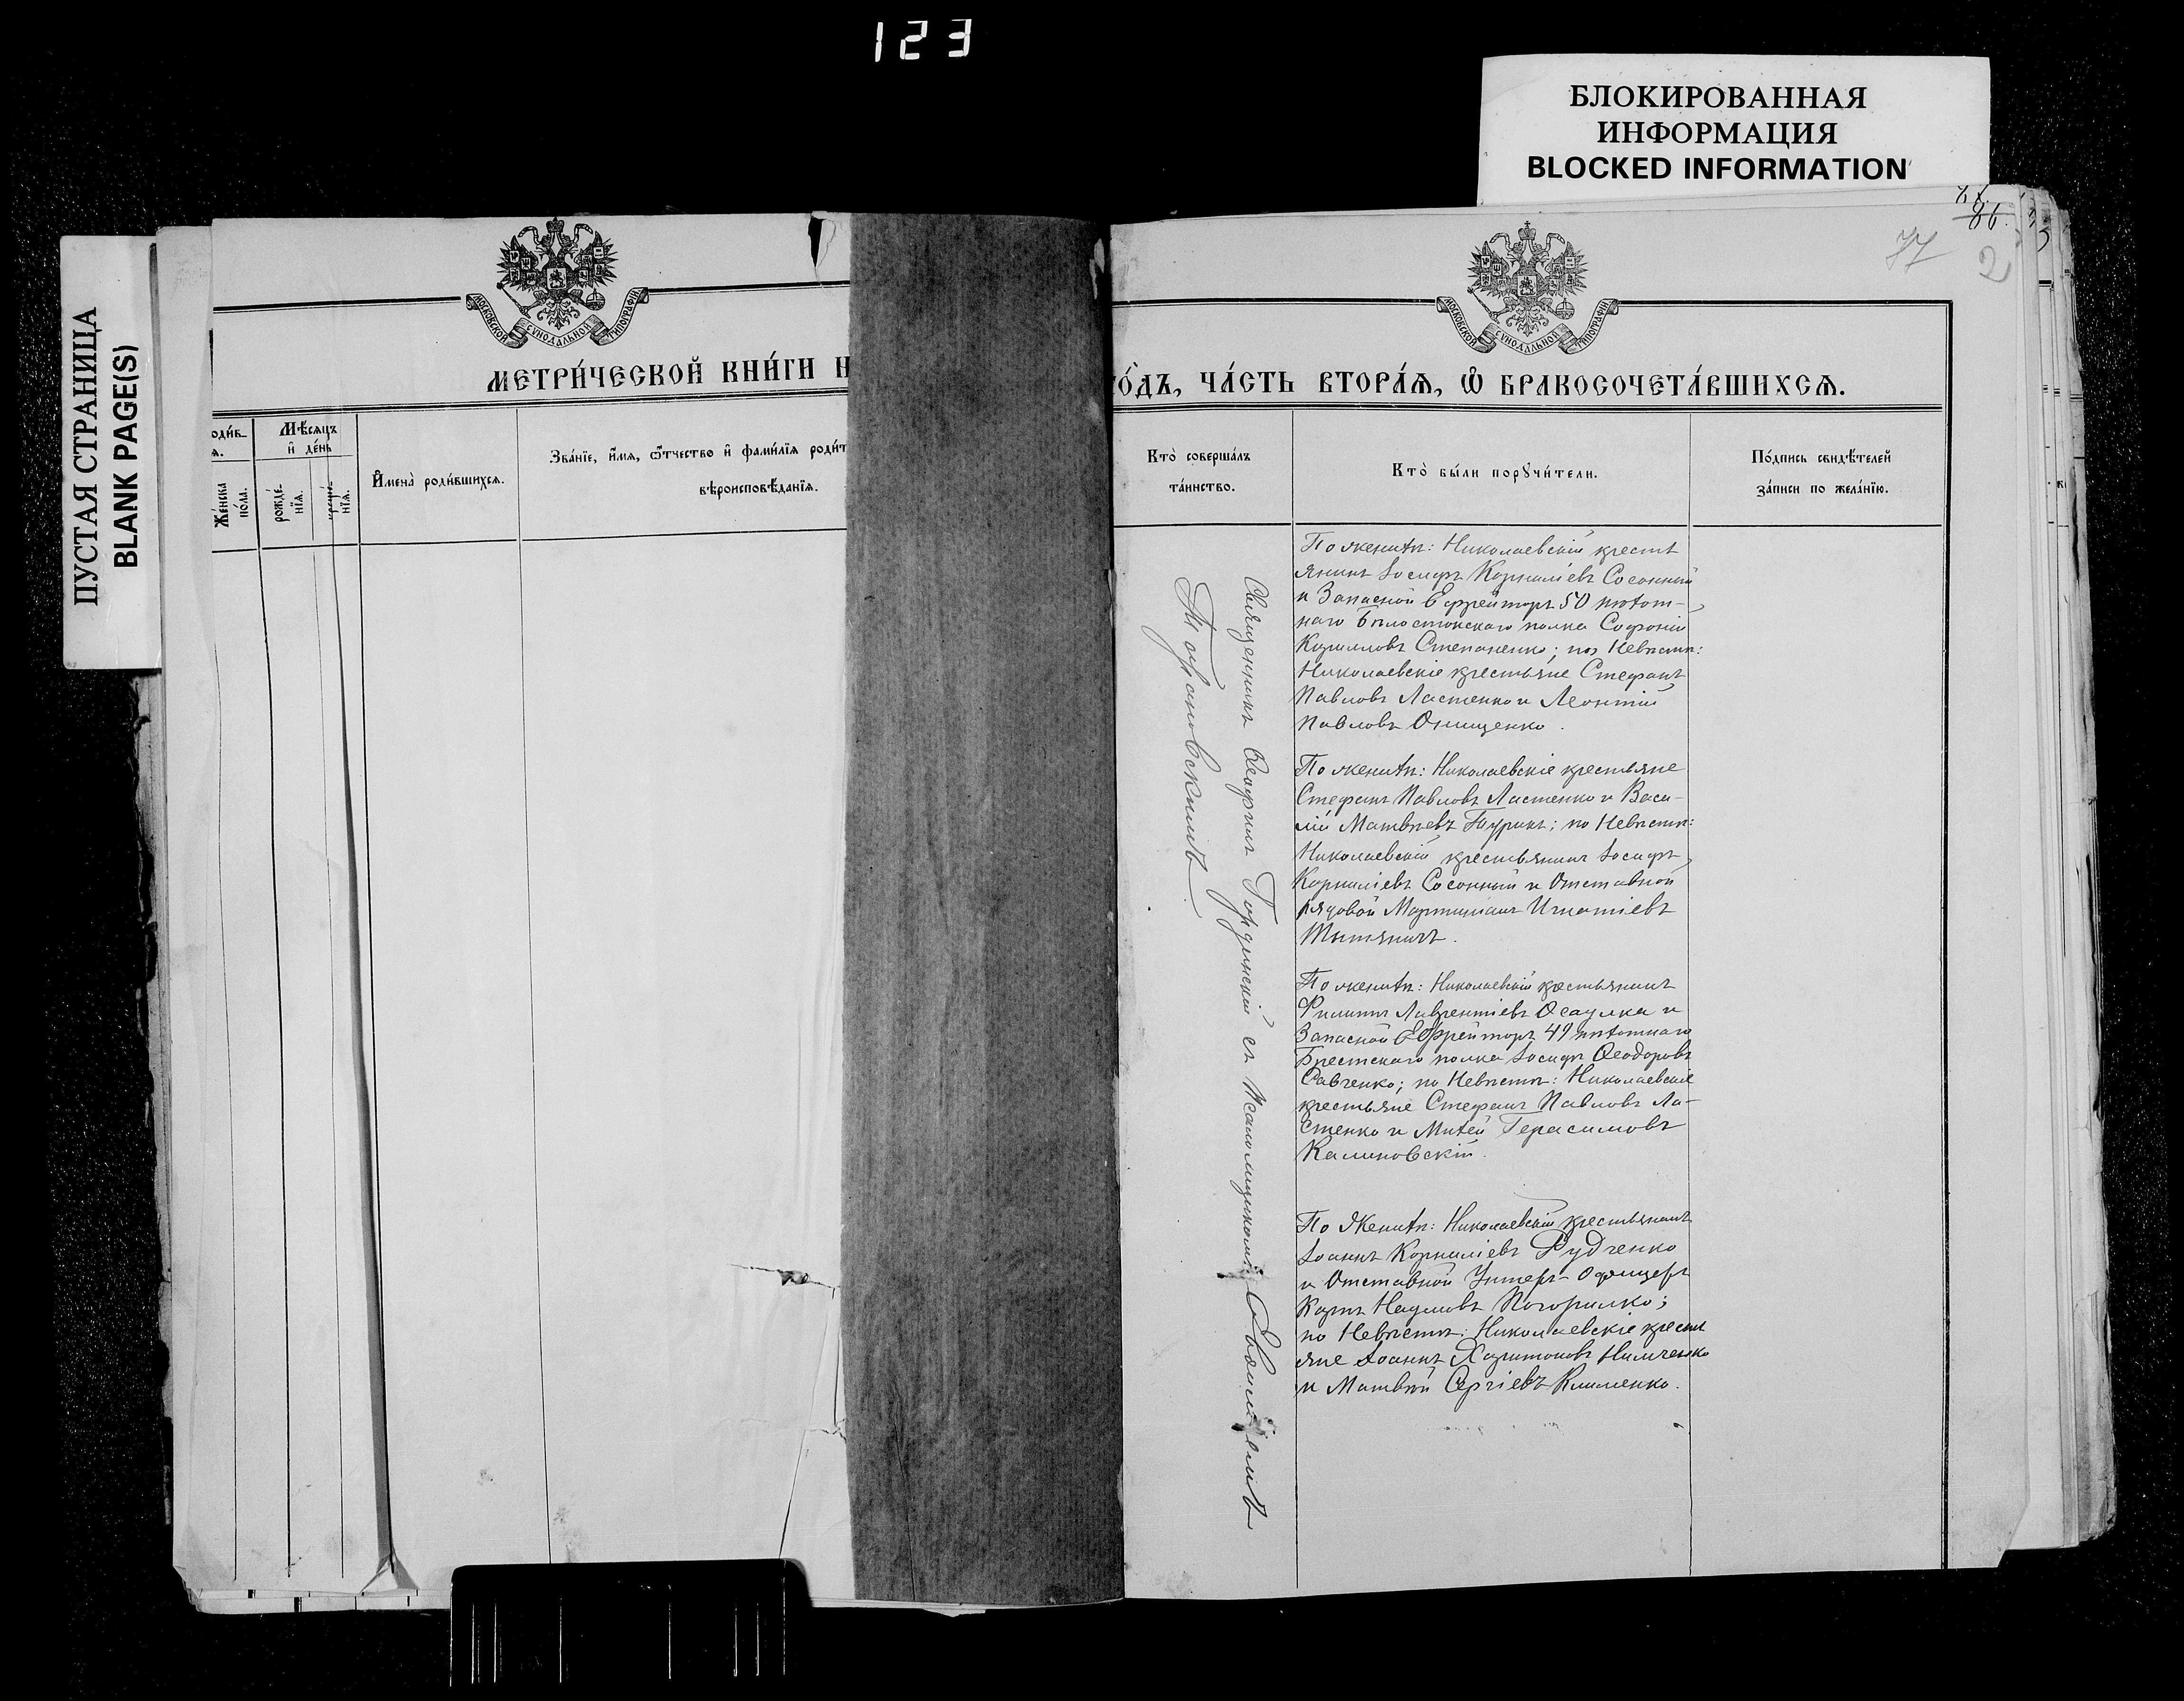 123
БЛОКИРОВАННАЯ
ИНФОРМАЦИЯ
BLOCKED INFORMATION
ПУСТАЯ СТРАНИЦА
BLANK PAGE(S)
МОСКОВСКОЙ СѴНОДАЛЬНОЙ ТИПОГРАФІИ
МЕТРИ́ЧЕСКОЙ КНИ́ГИ Н
оди́в-
я.
Же́нска
по́ла.
Мѣ́сяцъ
и҆ де́нь
рожде́-
нїя.
креще́-
нїя.
И҆мена̀ роди́вшихсѧ.
Зва́нїе, и҆́мя, ѻ҆́тчество и҆ фами́лїя роди́т
вѣроисповѣ́данїя.
86.
77
2
МОСКОВСКОЙ СѴНОДАЛЬНОЙ ТИПОГРАФІИ
ГО́ДЪ, ЧА́СТЬ ВТОРА́Ѧ, Ѡ҆ БРАКОСОЧЕТА́ВШИХСѦ.
Кто̀ соверша́лъ
та́инство.
Кто̀ бы́ли порꙋчи́тели.
По́дпись свидѣ́телей
за́писи по жела́нїю.
Священникъ Георгій Гординскій съ Псаломщикомъ
По женихѣ: Николаевскій кресть
янинъ Іосифъ Корниліевъ Сосонный
и Запасной Ефрейторъ 50 пѣхот-
наго Бѣлостокскаго полка Софроній
Кирилловъ Степаненко; по Невѣстѣ:
Николаевскіе крестьяне Стефанъ
Павловъ Ластенко и Леонтій
Павловъ Онищенко.
По женихѣ: Николаевскіе крестьяне
Стефанъ Павловъ Ластенко и Васи-
лій Матвѣевъ; по Невѣстѣ:
Николаевскій крестьянинъ Іосифъ
Корниліевъ Сосонный и Отставной
рядовой Мартиніанъ Игнатіевъ
По женихѣ: Николаевскій крестьянинъ
Филиппъ Лаврентіевъ Осаулка и
Запасной Ефрейторъ 49 пѣхотнаго
Брестскаго полка Іосифъ Ѳеодоровъ
Савченко; по Невѣстѣ: Николаевскіе
крестьяне Стефанъ Павловъ Ла-
стенко и Михей Герасимовъ
Калиновскій.
По Женихѣ: Николаевскій крестьянинъ
Іоаннъ Корниліевъ Рудченко
и Отставной Унтеръ-Офицеръ
Карпъ Наумовъ Погорилко;
по Невѣстѣ: Николаевскіе кресть
яне Іоаннъ Харитоновъ Нимченко
и Матвѣй Сергіевъ Клименко.